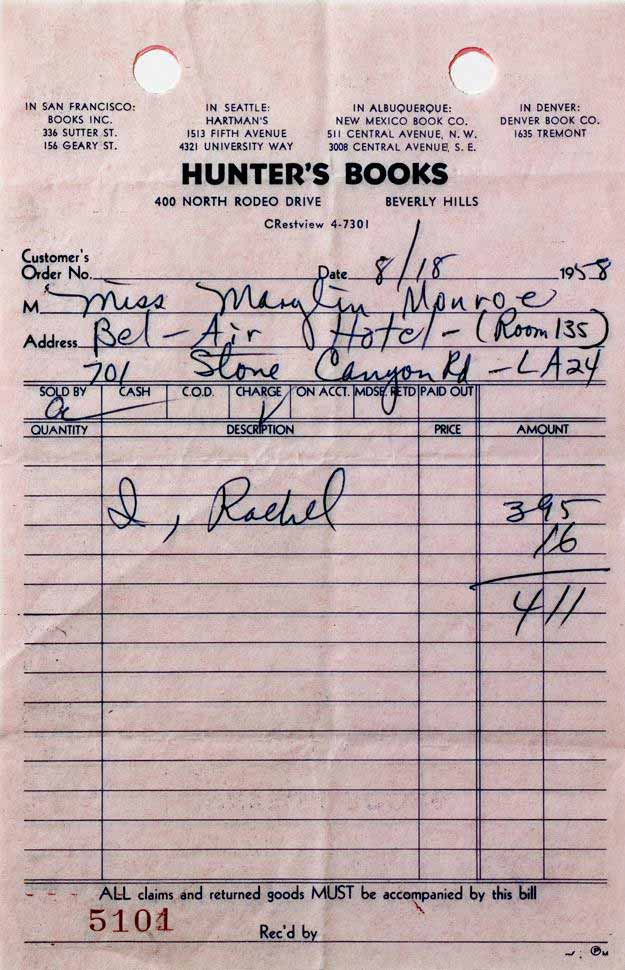 IN SAN FRANCISCO: IN SEATTLE: IN ALBUQUERQUE: IN DENVER:
BOOKS INC. HARTMAN'S NEW MEXICO BOOK CO. DENVER BOOK CO.
336 SUTTER ST. 1513 FIFTH AVENUE 511 CENTRAL AVENUE, N. W. 1635 TREMONT
156 GEARY ST. 4321 UNIVERSITY WAY 3008 CENTRAL AVENUE, S. E.
HUNTER'S BOOKS
400 NORTH RODEO DRIVE BEVERLY HILLS
CRestview 4-7301
Customer's
Order No. Date 8/18 1958
M Miss Marylin Monroe
Address Bel-Air Hotel - (Room 135)
701 Stone Canyon Rd - LA24
SOLD BY CASH C.O.D. CHARGE ON ACCT. MDSE. RETD PAID OUT
QUANTITY DESCRIPTION PRICE AMOUNT
I, Rachel 3 95
16
4 11
ALL claims and returned goods MUST be accompanied by this bill
5101
Rec'd by